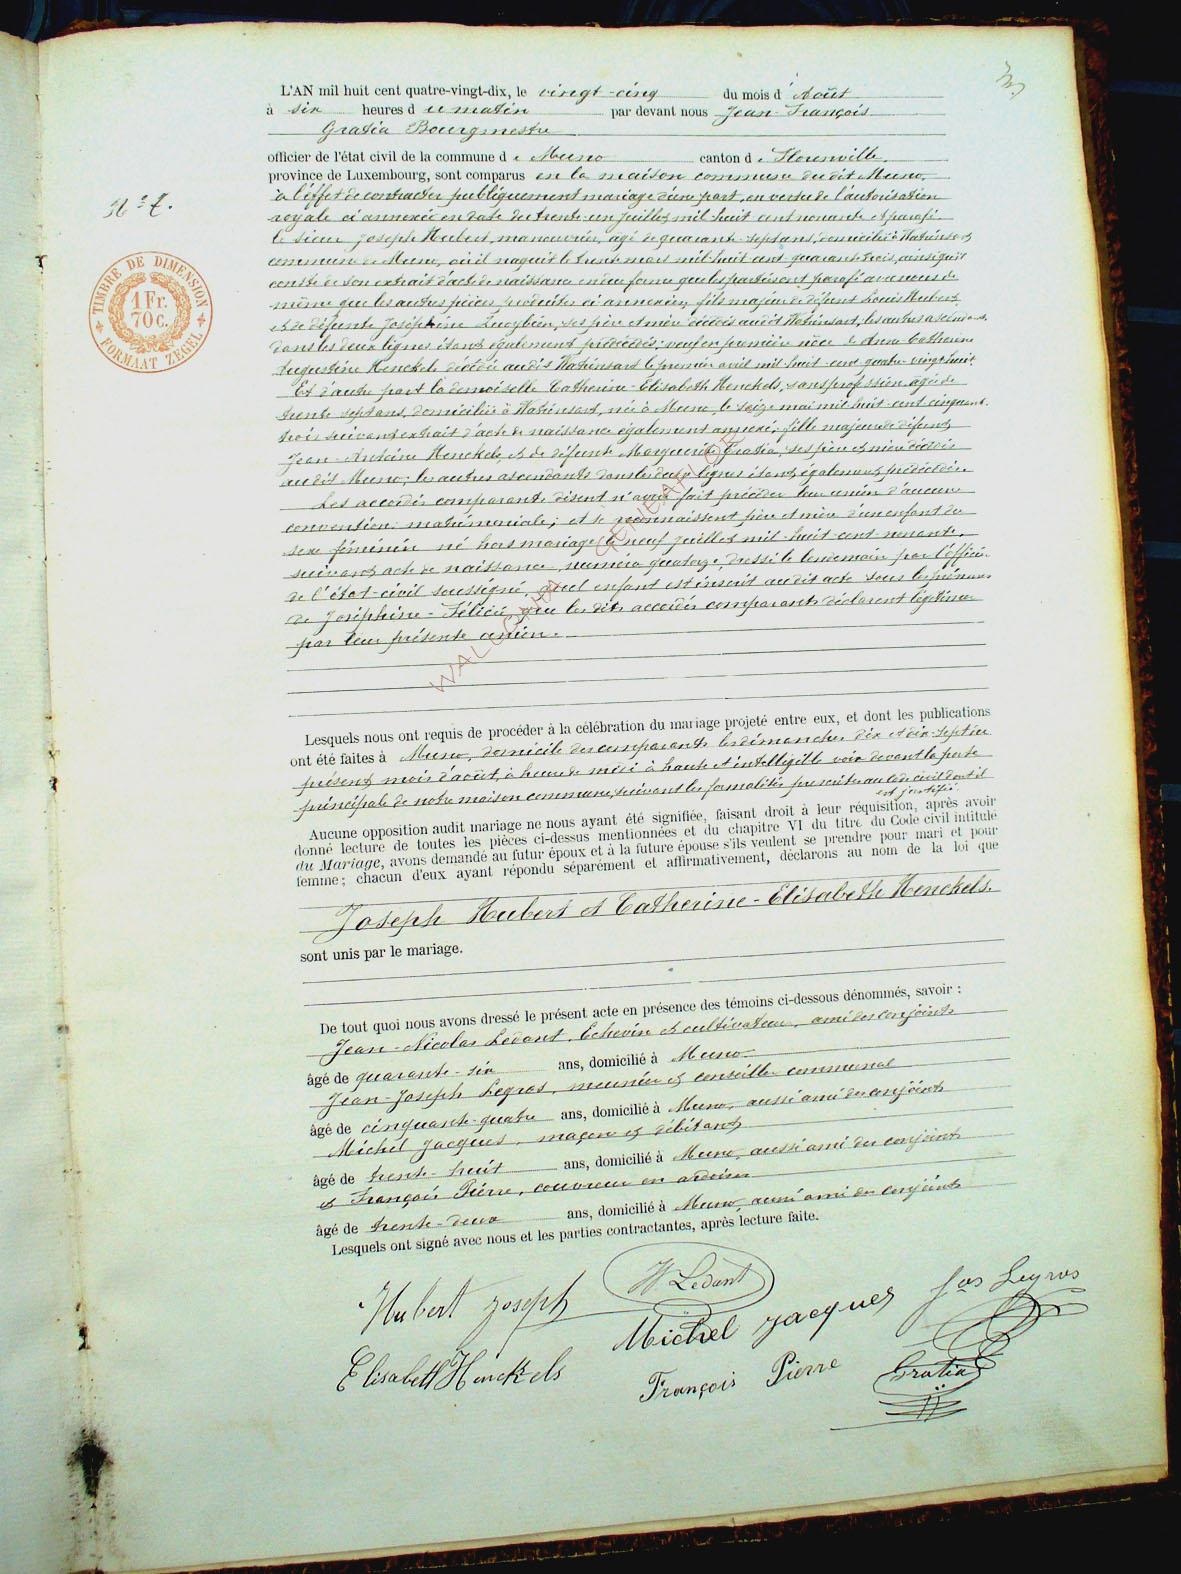 L'AN mil huit cent quatre-vingt-dix, le vingt-cinq du mois d'Août
à six heures du matin par devant nous Jean-François
Gratia Bourgmestre
officier de l'état civil de la commune de Muno canton de Florenville
province de Luxembourg, sont comparus en la maison commune du dit Muno,
à l'effet de contracter publiquement mariage d'une part, en vertu de l'autorisation
royale ci annexée en date du trente-un juillet mil huit cent nonante et parafé
le sieur Joseph Hubert, manouvrier, âgé de quarante-sept ans, domicilié à Watrinsart
commune de Muno, où il naquit le trente mars mil huit cent quarante trois, ainsi qu'il
conste de son extrait d'acte de naissance en due forme que les parties ont parafé avec nous de
même que les autres pièces produites ci annexées, fils majeur de défunt Louis Hubert,
et de défunte Joséphine ses père et mère décédés audit Watrinsart, les autres ascendants
dans les deux lignes étant également prédécédés; veuf en première noce de Anne Catherine
Augustine Henckels décédée audit Watrinsart le premier avril mil huit cent quatre-vingt-huit.
Et d'autre part la demoiselle Catherine-Elisabeth Henckels, sans profession, âgée de
trente sept ans, domiciliée à Watrinsart, née à Muno, le seize mai mil huit-cent cinquante
trois suivant extrait d'acte de naissance également annexé; fille majeure de défunt
Jean-Antoine Henckels, et de défunte Marguerite Gratia, ses père et mère décédés
audit Muno; les autres ascendants dans les deux lignes étant également prédécédés.
Les accordés comparants disent n'avoir fait précéder leur union d'aucune
convention matrimoniale; et se reconnaissent père et mère d'un enfant du
sexe féminin né hors mariage le neuf juillet mil-huit-cent-nonante,
suivant acte de naissance, numéro quatorze, dressé le lendemain par l'officier
de l'état-civil soussigné, quel enfant est inscrit audit acte sous les prénoms
de Joséphine-Félicie, que les dits accordés comparants déclarent légitimer
par leur présente union.
Lesquels nous ont requis de procéder à la célébration du mariage projeté entre eux, et dont les publications
ont été faites à Muno, domicile des comparants les dimanches dix et dix-sept du
présent mois d'août, à heure de midi à haute et intelligible voix devant la porte
principale de notre maison commune, suivant les formalités prescrites au code civil dont il
est justifié.
Aucune opposition audit mariage ne nous ayant été signifiée, faisant droit à leur réquisition, après avoir
donné lecture de toutes les pièces ci-dessus mentionnées et du chapitre VI du titre du Code civil intitulé
du Mariage, avons demandé au futur époux et à la future épouse s'ils veulent se prendre pour mari et pour
femme; chacun d'eux ayant répondu séparément et affirmativement, déclarons au nom de la loi que
Joseph Hubert et Catherine-Elisabeth Henckels.
sont unis par le mariage.
De tout quoi nous avons dressé le présent acte en présence des témoins ci-dessous dénommés, savoir :
Jean-Nicolas Ledant, Echevin et cultivateur, ami des conjoints
âgé de quarante-six ans, domicilié à Muno
Jean-Joseph Legros, meunier et conseiller communal
âgé de cinquante-quatre ans, domicilié à Muno, aussi ami des conjoints
Michel Jacques, maçon et débitant
âgé de trente-huit ans, domicilié à Muno, aussi ami des conjoints
et François Pierre, couvreur en ardoises
âgé de trente-deux ans, domicilié à Muno, aussi ami des conjoints
Lesquels ont signé avec nous et les parties contractantes, après lecture faite.
Hubert Joseph
Ledant
Jos Legros
Michel Jacques
Elisabeth Henckels
François Pierre
Gratia
N° 7.
TIMBRE DE DIMENSION
1 Fr.
70 C.
FORMAAT ZEGEL